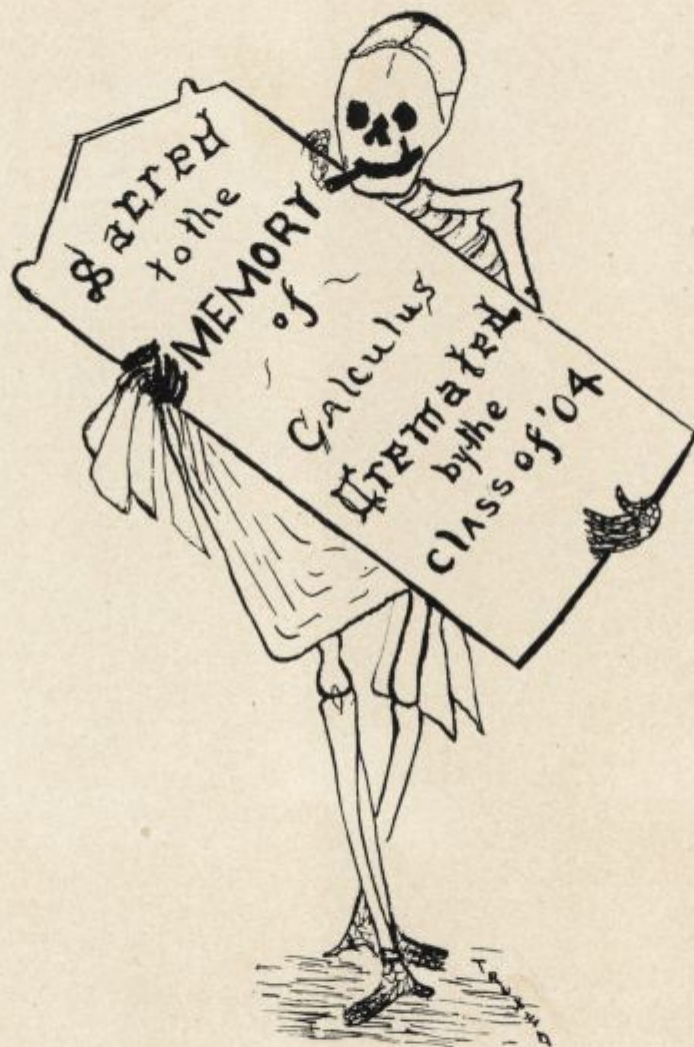 Sacred
to the
MEMORY
of
Calculus
Cremated
by the
Class of '04